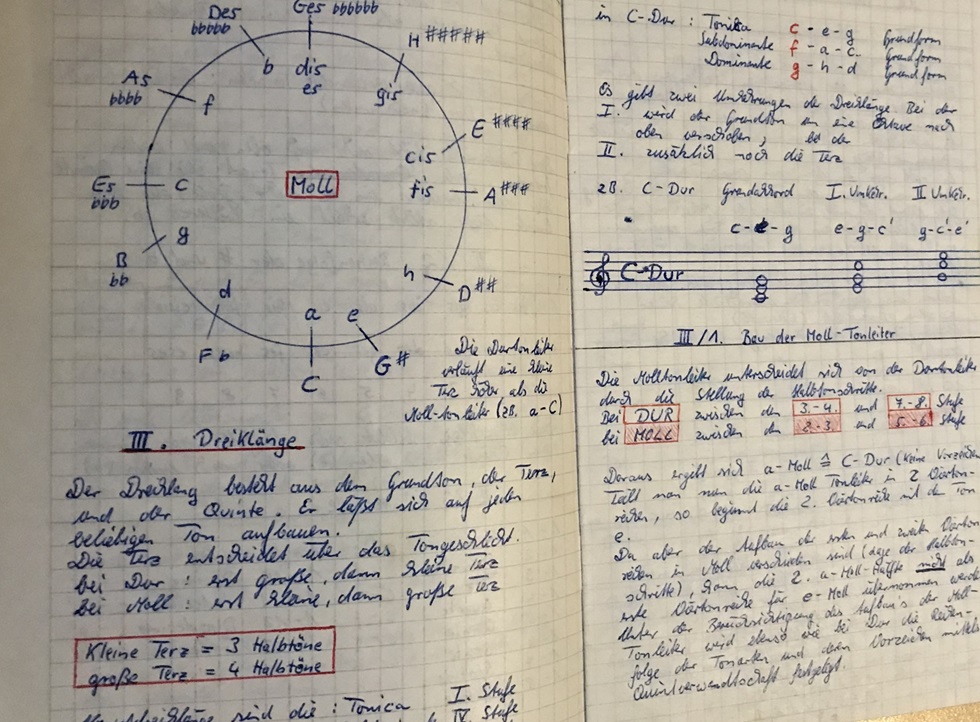 Ges bbbbbb
Des
bbbbb
H #####
b
dis
es
gis
As
bbbb
f
E ####
cis
Es
bbb
c
Moll
fis
A ###
B
bb
g
h
D ##
d
F b
a
e
G #
C
Die Durtonleiter
verläuft eine kleine
Terz höher als die
Moll-tonleiter (zB. a-C)
III. Dreiklänge
Der Dreiklang besteht aus dem Grundton, der Terz,
und der Quinte. Er läßt sich auf jeden
beliebigen Ton aufbauen.
Die Terz entscheidet über das Tongeschlecht.
bei Dur : erst große, dann kleine Terz
bei Moll : erst kleine, dann große Terz
Kleine Terz = 3 Halbtöne
große Terz = 4 Halbtöne
sind die : Tonica I. Stufe
IV. Stufe
in C-Dur : Tonika c - e - g Grundform
Subdominante f - a - c Grundform
Dominante g - h - d Grundform
Es gibt zwei Umkehrungen der Dreiklänge. Bei der
I. wird der Grundton um eine Oktave nach
oben verschoben, bei der
II. zusätzlich noch die Terz
zB. C-Dur Grundakkord I. Umkehr. II Umkehr.
c - e - g e - g - c' g - c' - e'
C-Dur
III/1. Bau der Moll-Tonleiter
Die Molltonleiter unterscheidet sich von der Durtonleiter
durch die Stellung der Halbtonschritte.
Bei DUR zwischen den 3.-4. und 7.-8. Stufe
bei MOLL zwischen den 2.-3. und 5.-6. Stufe
Daraus ergibt sich a-Moll ≙ C-Dur (keine Vorzeichen
Teilt man nun die a-Moll Tonleiter in 2
so beginnt die 2. mit dem Ton
e.
Da aber der Aufbau der ersten und zweiten
in Moll verschieden sind (Lage der Halbton-
schritte), kann die 2. a-Moll-Hälfte nicht als
erste für e-Moll übernommen werden
Unter der Berücksichtigung des Aufbau's der Moll-
Tonleiter wird ebenso wie bei Dur die Reihen-
folge der Tonarten und deren Vorzeichen mittels
Quintverwandtschaft festgelegt.